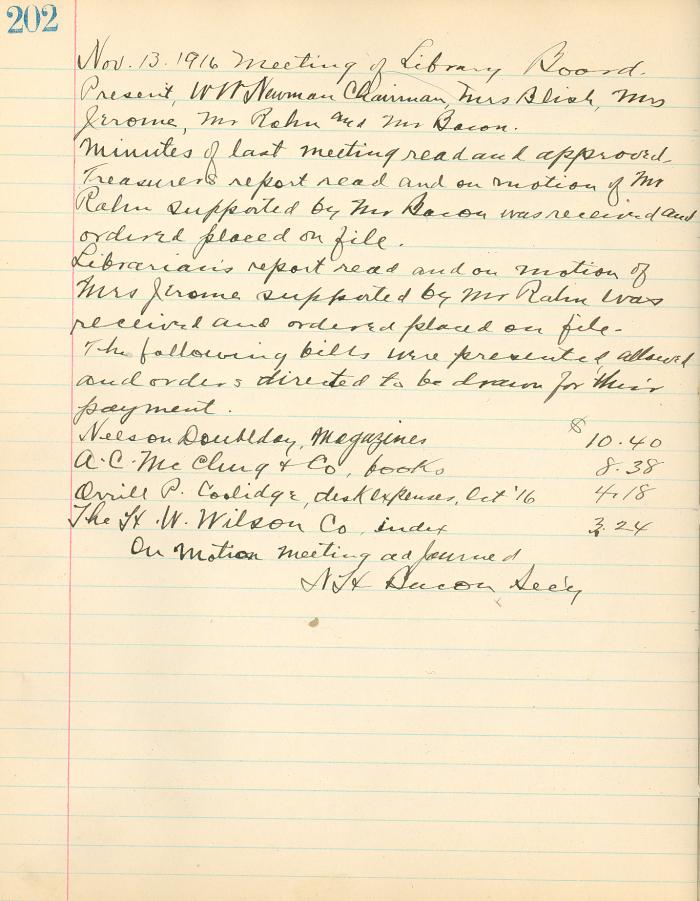 202
Nov. 13. 1916 Meeting of Library Board.
Present, W W Newman Chairman, Mrs Blish, Mrs
Jerome, Mr Rahn and Mr Bacon.
Minutes of last meeting read and approved.
Treasurers report read and on motion of Mr
Rahn supported by Mr Bacon was received and
ordered placed on file.
Librarian's report read and on motion of
Mrs Jerome supported by Mr Rahn was
received and ordered placed on file.
The following bills were presented, allowed
and orders directed to be drawn for their
payment.
Nelson Doubleday, Magazines $ 10.40
A. C. McClurg & Co, books 8.38
Orrill P. Coolidge, desk expenses, Oct '16 4.18
The H. W. Wilson Co, index 3.24
On motion meeting adjourned
N H Bacon Sec'y